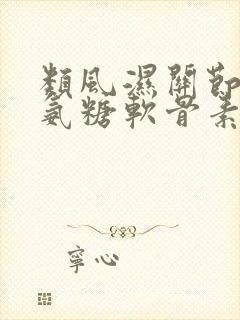 類風濕關節
氨糖軟骨素
寧心